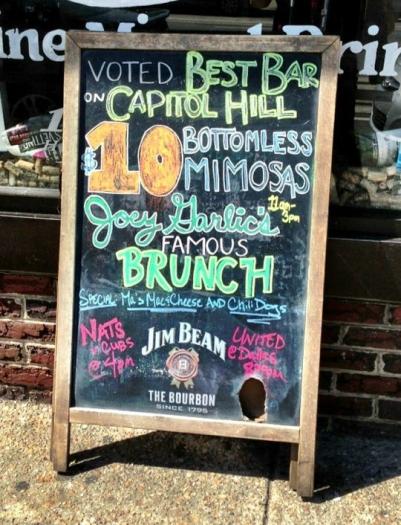 VOTED BEST BAR
ON CAPITOL HILL
$10 BOTTOMLESS
MIMOSAS
11am-
3pm
Joey Garlic's
FAMOUS
BRUNCH
SPECIAL: Ma's Mac&Cheese AND Chili Dogs
NATS
vs CUBS
@ 4pm
JIM BEAM
B
THE BOURBON
SINCE 1795
UNITED
@ Dallas